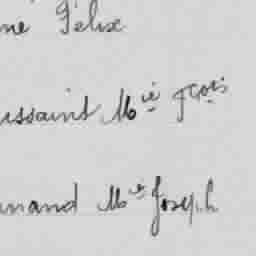 ne Félix
ussaint Mie fçois
nand Mie Joseph